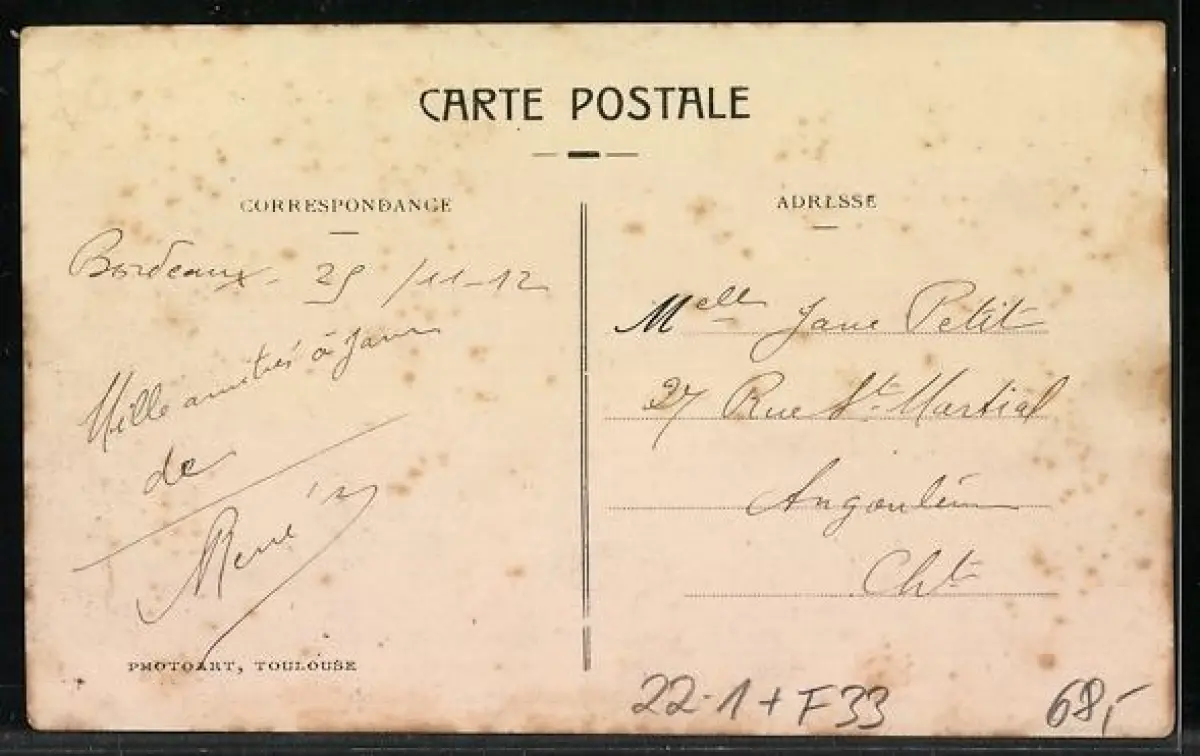 CARTE POSTALE
CORRESPONDANCE
ADRESSE
Bordeaux - 25 /11-12
Mille amitiés à Jane
de
René
Melle Jane Petit
27 Rue St. Martial
Angoulême
Chte
PHOTOART, TOULOUSE
22-1+F33
68,-